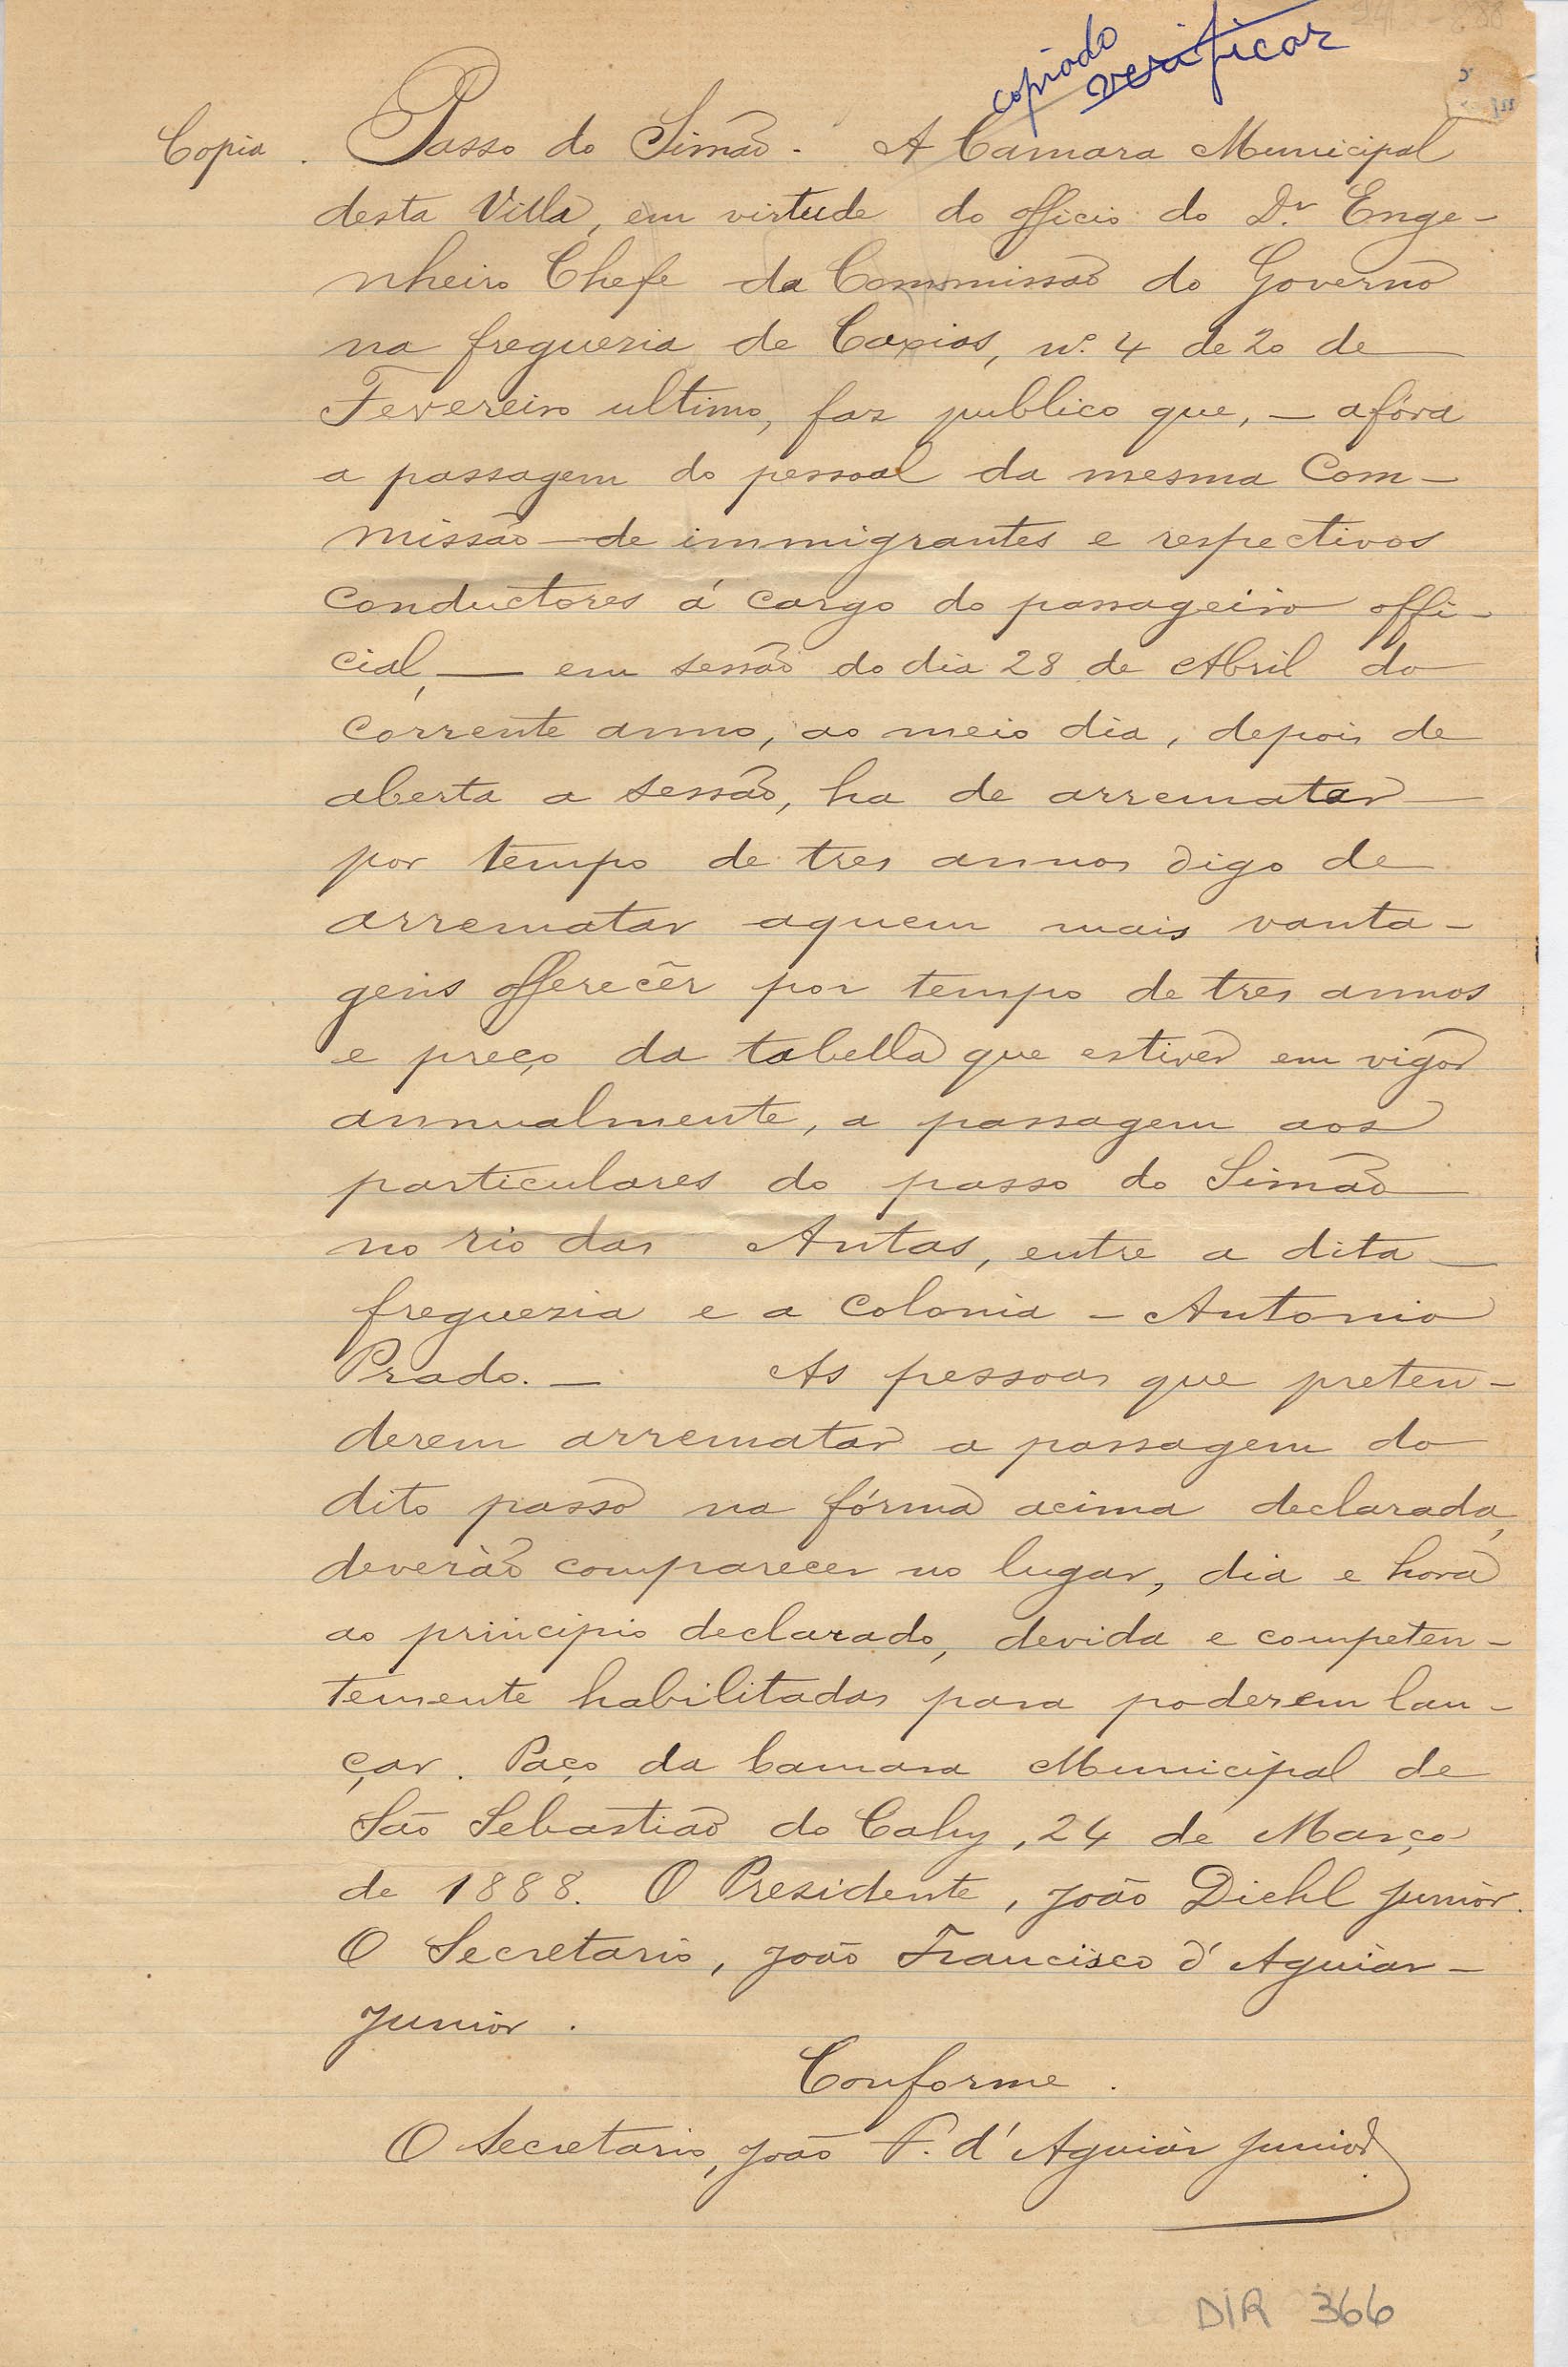 copiado
verificar
Copia. Passo do Simão. A Camara Municipal
desta Villa, em virtude do officio do D.r Enge-
nheiro Chefe da Commissão do Governo
na freguezia de Caxias, n.º 4 de 20 de
Fevereiro ultimo, faz publico que, — afóra
a passagem do pessoal da mesma Com-
missão — de immigrantes e respectivos
conductores á cargo do passageiro offi-
cial, — em sessão do dia 28 de Abril do
corrente anno, ao meio dia, depois de
aberta a sessão, ha de arrematar
por tempo de tres annos digo de
arrematar aquem mais vanta-
gens offerecêr por tempo de tres annos
e preço da tabella que estiver em vigor
annualmente, a passagem aos
particulares do passo do Simão
no rio das Antas, entre a dita
freguezia e a colonia - Antonio
Prado. — As pessoas que preten-
derem arrematar a passagem do
dito passo na fórma acima declarada,
deverão comparecer no lugar, dia e hora
ao principio declarado, devida e competen-
temente habilitadas para poderem lan-
çar. Paço da Camara Municipal de
São Sebastião do Cahy, 24 de Março
de 1888. O Presidente, João Diehl Junior.
O Secretario, João Francisco d'Aguiar
Junior.
Conforme.
O Secretario, João F. d'Aguiar Junior
DIR 366